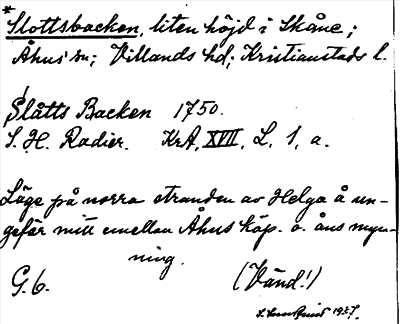 * Slottsbacken, liten höjd i Skåne;
Åhus sn; Villands hd; Kristianstads l.
Slåtts Backen 1750.
S. H. Radier. KrA, XVII, L, 1, a.
Läge på norra stranden av Helga å un-
gefär mitt emellan Åhus köp. o. åns myn-
ning.
G. 6. (Vänd!)
1927.